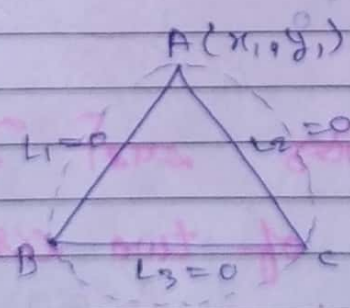 A(x₁, y₁)
L₁=0
L₂=0
B
L₃=0
C